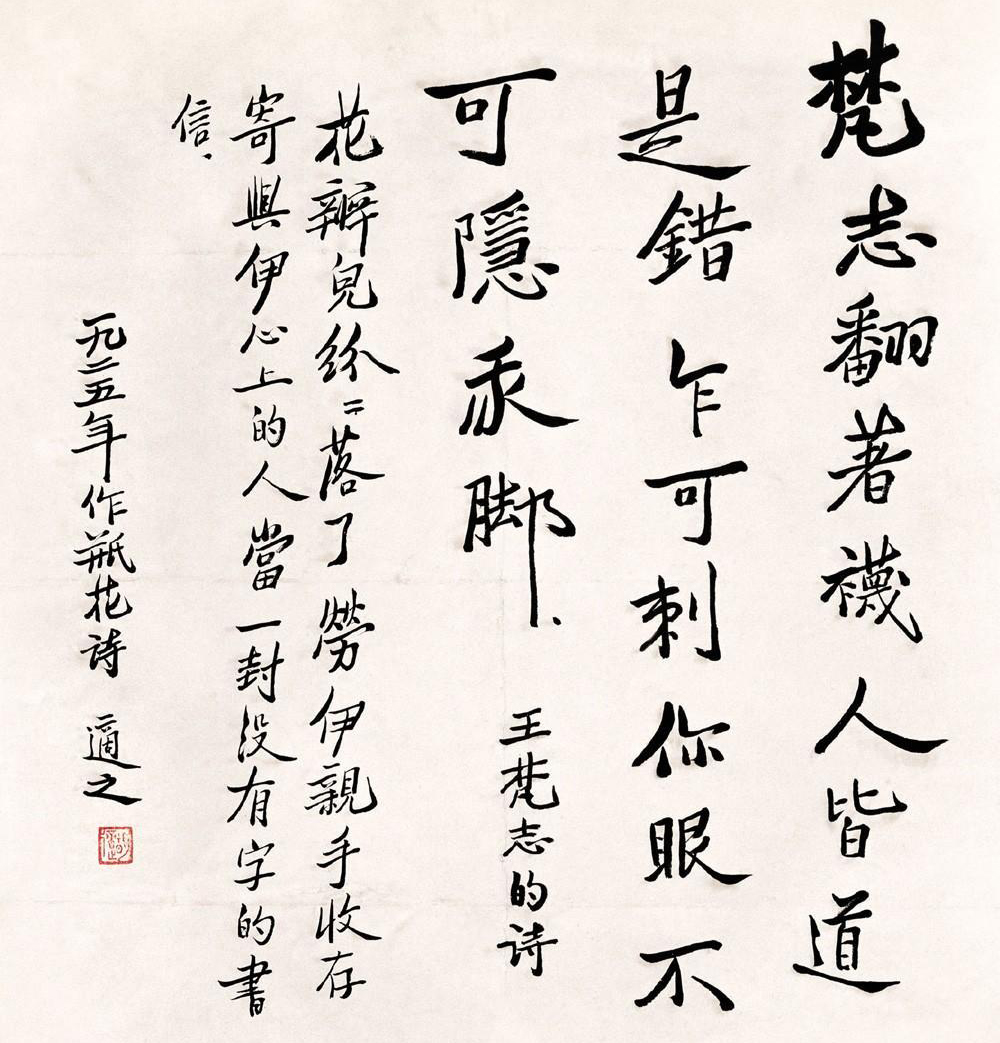 梵志翻著襪人皆道
是錯乍可刺你眼不
可隱我脚. 王梵志的詩
花瓣兒紛〻落了勞伊親手收存
寄與伊心上的人當一封沒有字的書
信.
一九二五年作瓶花詩 適之